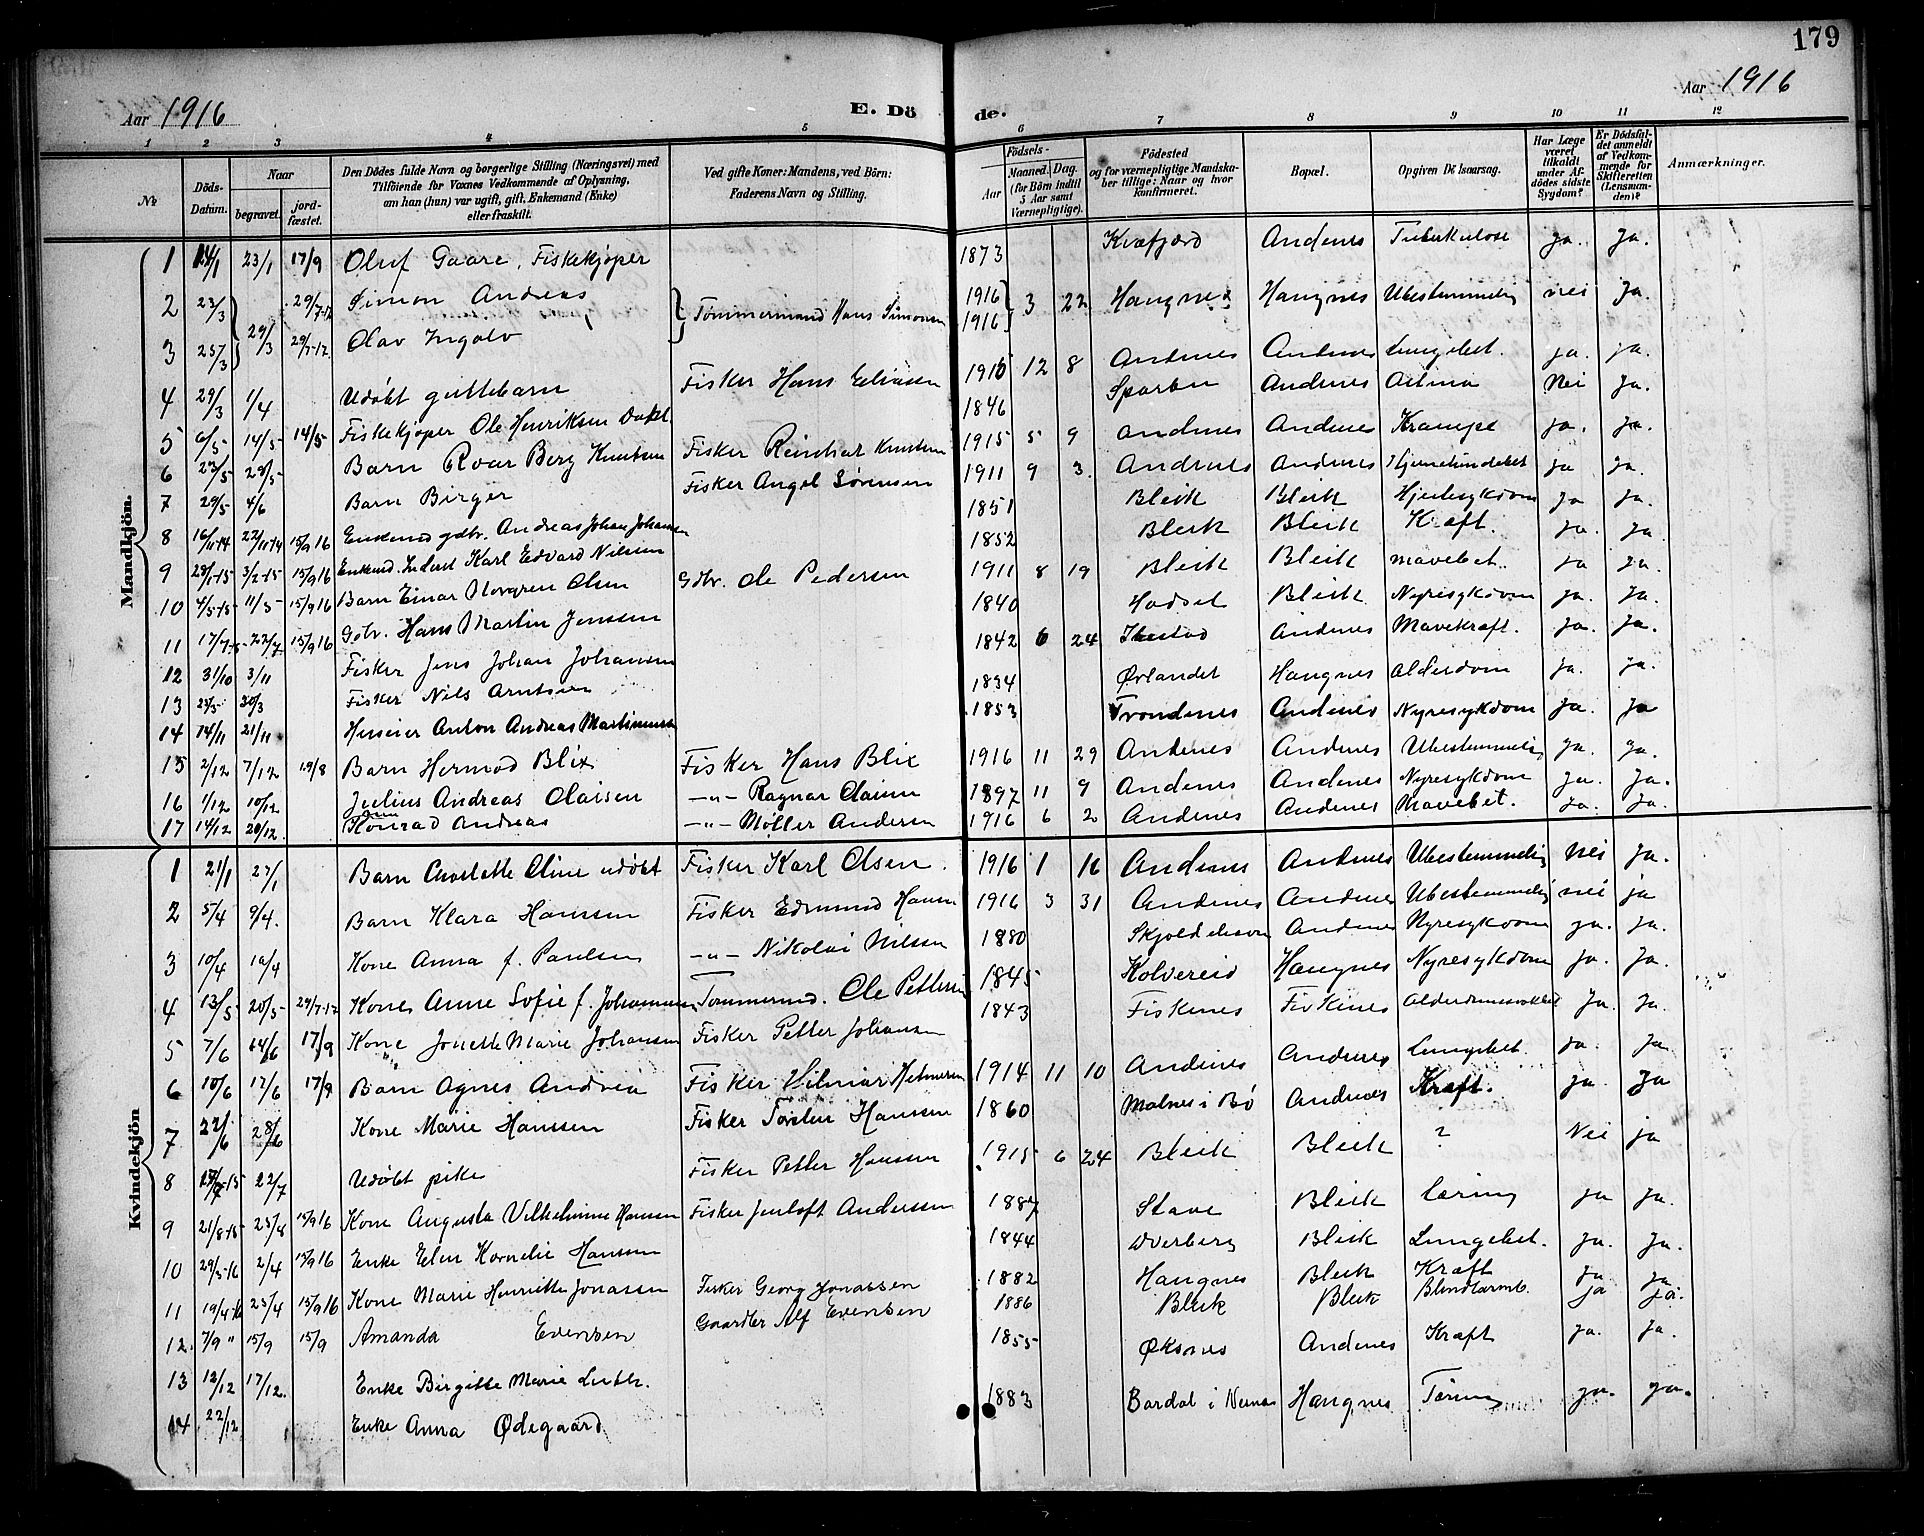 179
Aar 1916
E. Dö
de.
Aar 1916
1 2 3 4 5 6 7 8 9 10 11 12
№
Döds-Datum.
Naar
begravet.
jord-fæstet.
Den Dödes fulde Navn og borgerlige Stilling (Næringsvei) med
Tilföiende for Voxnes Vedkommende af Oplysning,
om han (hun) var ugift, gift, Enkemand (Enke)
eller fraskilt.
Ved gifte Koner: Mandens, ved Börn:
Faderens Navn og Stilling.
Födsels-
Aar
Maaned. Dag.
(for Börn indtil
5 Aar samt
Værnepligtige).
Födested
og for værnepligtige Mandska-
ber tillige: Naar og hvor
konfirmeret.
Bopæl.
Opgiven Dödsaarsag.
Har Læge
været
tilkaldt
under Af-
dödes sidste
Sygdom?
Er Dödsfal-
det anmeldt
af Vedkom-
mende for
Skifteretten
(Lensman-
den)?
Anmærkninger.
Mandkjön.
1 14/1 23/1 17/9 Oluf Gaare, Fiskekjøper 1873 Kvæfjord Andenes Tuberkulose Ja. Ja.
2 23/3 29/3 29/7-17 Simon Andreas Tømmermand Hans Simonsen 1916 3 22 Haugnes Haugnes Ubestemmelig nei Ja.
3 25/3 29/7-17 Olav Ingolv 1916
4 29/3 1/4 Udøbt guttebarn Fisker Hans Eliasen 1915 12 8 Andenes Andenes Lungebet. ja. ja.
5 6/5 14/5 14/5 Fiskekjøper Ole Henriksen Dokl 1846 Sparbu Andenes Astma Nei Ja.
6 23/5 29/5 Barn Roar Berg Knutsen Fisker Reinhart Knutsen 1915 5 9 Andenes Andenes Krampe ja. ja.
7 29/5 4/6 Barn Birger Fisker Angel Sørensen 1911 9 3. Andenes Andenes Hjernehindebet ja ja.
8 16/11-14 22/11-14 15/9 16 Enkemd gdbr. Andreas Johan Johansen 1851 Bleik Bleik Hjertesykdom ja ja.
9 28/1-15 3/2-15 15/9 16 Enkemd. Inderst Karl Edvard Nilsen 1852 Bleik Bleik Kræft. ja. ja.
10 4/5-15 11/5 15/9 16 Barn Einar Norgren Olsen Gdbr. Ole Pedersen 1911 8 19 Bleik Bleik mavebet. ja ja.
11 17/7-15 22/7 15/9 16 Gdbr. Hans Martin Jenssen 1840 Hadsel Bleik Nyresykdom ja. Ja.
12 31/10 3/11 Fisker Jens Johan Johansen 1842 6 24 Ibestad Andenes Mavekræft. ja. ja.
13 25/5 30/3 Fisker Nils Arntsen 1834 Ørlandet Haugnes Alderdom ja. ja.
14 14/11 21/11 Huseier Anton Andreas Martinussen 1853 Trondenes Andenes Nyresykdom ja. ja
15 2/12 7/12 19/8 Barn Hermod Blix Fisker Hans Blix 1916 11 29 Andenes Andenes Ubestemmelig ja. ja.
16 1/12 10/12 Julius Andreas Claisen -"- Ragnar Claisen 1897 11 9 Andenes Andenes Nyresykdom ja. Ja.
17 14/12 20/12. Konrad Andreas -"- Møller Andersen 1916 6 2 Andenes Andenes Mavebet. ja. ja.
Kvindekjön
1 21/1 23/1 Barn Charlotte Oline udøbt Fisker Karl Olsen. 1916 1 16 Andenes Andenes Ubestemmelig nei ja.
2 5/4 9/4. Barn Klara Hanssen Fisker Edmund Hansen 1916 3 31 Andenes Andenes Ubestemmelig nei ja
3 10/4 16/4 Kone Anna f. Paulsen -"- Nikolai Nilssen 1880 Skjoldehavn Andenes Nyresykdom ja. ja.
4 13/5 20/5 29/7-17 Kone Anne Sofie f. Johannesen Tømmermd. Ole Pettersen 1845 Kolvereid Haugnes Nyresykdom ja. Ja.
5 7/6 14/6 17/9 Kone Jonette Marie Johansen Fisker Petter Johansen 1843 Fiskenes Fiskenes Alderdomssvakhet Ja. Ja.
6 10/6 17/6 17/9 Barn Agnes Andrea Fisker Hilmar Helmersen 1914 11 10 Andenes Andenes Lungebet. ja. ja
7 22/6 28/6 Kone Marie Hanssen Fisker Torsten Hanssen 1860 Malnes i Bø Andenes Kræft. ja. ja
8 17/7-15 22/7 Udøbt pike Fisker Petter Hanssen 1915 6 24 Bleik Bleik ? Nei ja
9 21/8-15 25/8 15/9 16 Kone Augusta Vilhelmine Hansen Fisker Jentoft Anderssen 1887 Stave Bleik Tæring ja ja.
10 29/3-16 2/4 15/9 16 Enke Elen Kornelie Hansen 1844 Dverberg Bleik Lungebet. ja. ja.
11 19/4-16 25/4 15/9 16 Kone Marie Henriette Jonassen Fisker Georg Jonassen 1882 Haugnes Bleik Kræft ja ja
12. 7/9 " 15/9 15/9 Amanda Evensen Gaardbr Alf Evensen 1886 Bleik Bleik Blindtarmb. ja ja.
13 12/12 17/12. Enke Birgitte Marie Luth. 1855 Øksnes Andenes Kræft ja. ja.
14 22/12 Enke Anna Ødegaard 1883 Bardal i Nesna Haugnes Tæring ja. ja.